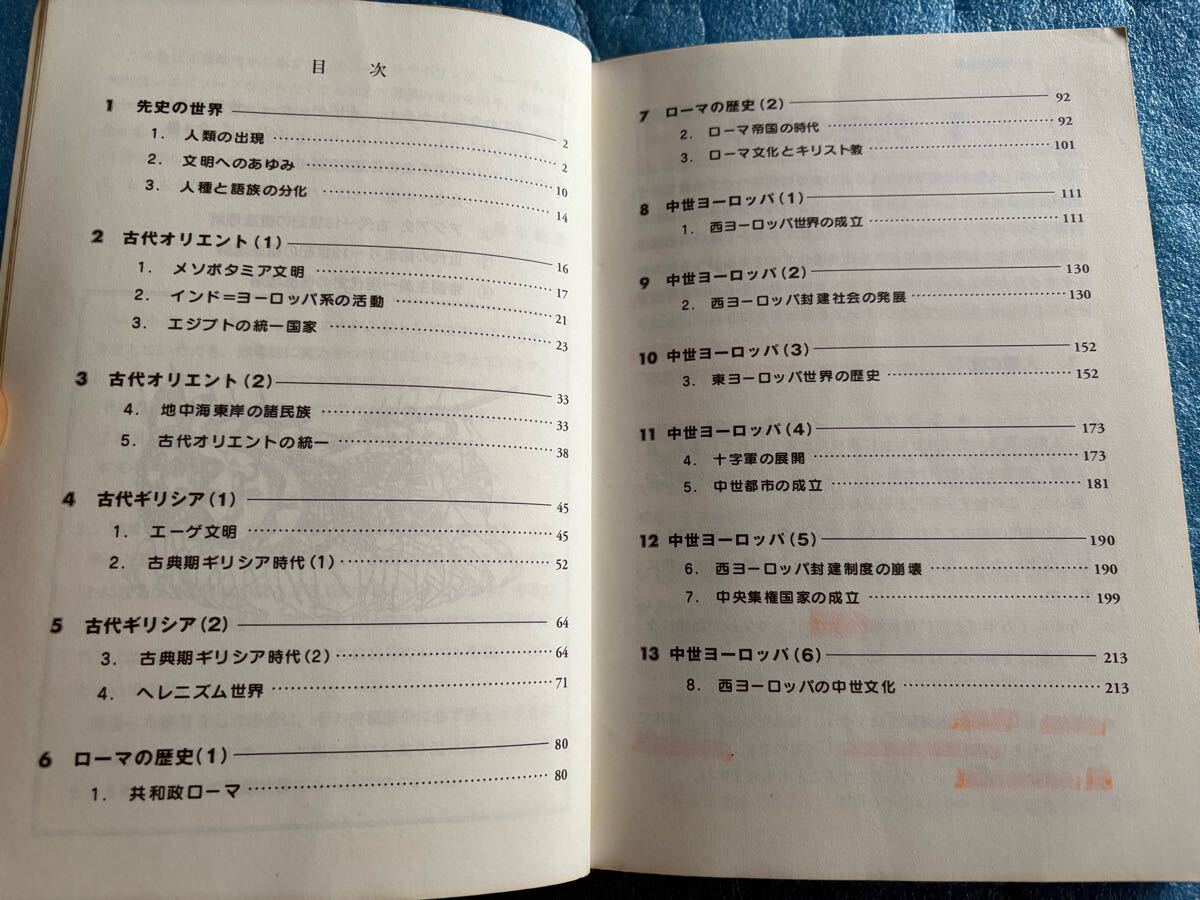 目 次
1 先史の世界 2
1. 人類の出現 2
2. 文明へのあゆみ 10
3. 人種と語族の分化 14
2 古代オリエント(1) 16
1. メソポタミア文明 17
2. インド=ヨーロッパ系の活動 21
3. エジプトの統一国家 23
3 古代オリエント(2) 33
4. 地中海東岸の諸民族 33
5. 古代オリエントの統一 38
4 古代ギリシア(1) 45
1. エーゲ文明 45
2. 古典期ギリシア時代(1) 52
5 古代ギリシア(2) 64
3. 古典期ギリシア時代(2) 64
4. ヘレニズム世界 71
6 ローマの歴史(1) 80
1. 共和政ローマ 80
7 ローマの歴史(2) 92
2. ローマ帝国の時代 92
3. ローマ文化とキリスト教 101
8 中世ヨーロッパ(1) 111
1. 西ヨーロッパ世界の成立 111
9 中世ヨーロッパ(2) 130
2. 西ヨーロッパ封建社会の発展 130
10 中世ヨーロッパ(3) 152
3. 東ヨーロッパ世界の歴史 152
11 中世ヨーロッパ(4) 173
4. 十字軍の展開 173
5. 中世都市の成立 181
12 中世ヨーロッパ(5) 190
6. 西ヨーロッパ封建制度の崩壊 190
7. 中央集権国家の成立 199
13 中世ヨーロッパ(6) 213
8. 西ヨーロッパの中世文化 213